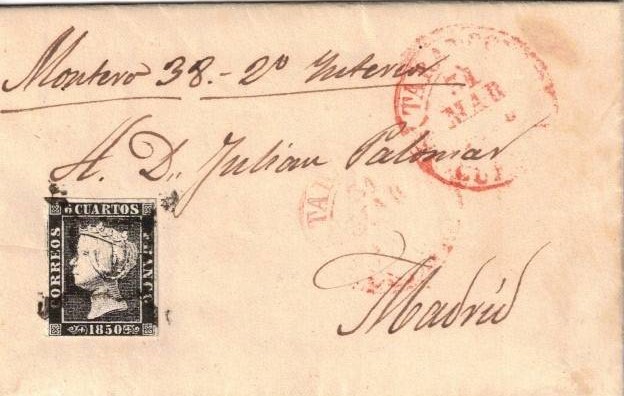 Montero 38.- 2º Interior
A. D. Julian Palomar
Madrid
6 CUARTOS
CORREOS
FRANCO
1850
31
MAR
TA